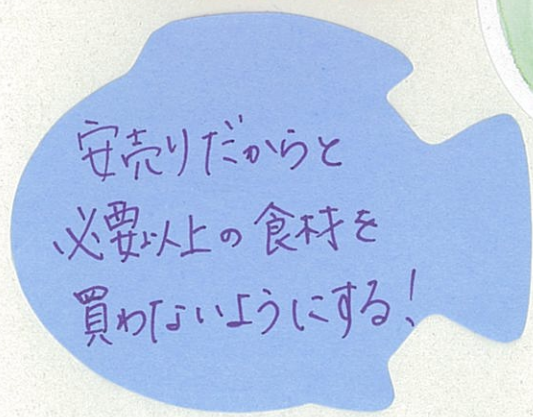 安売りだからと
必要以上の食材を
買わないようにする！